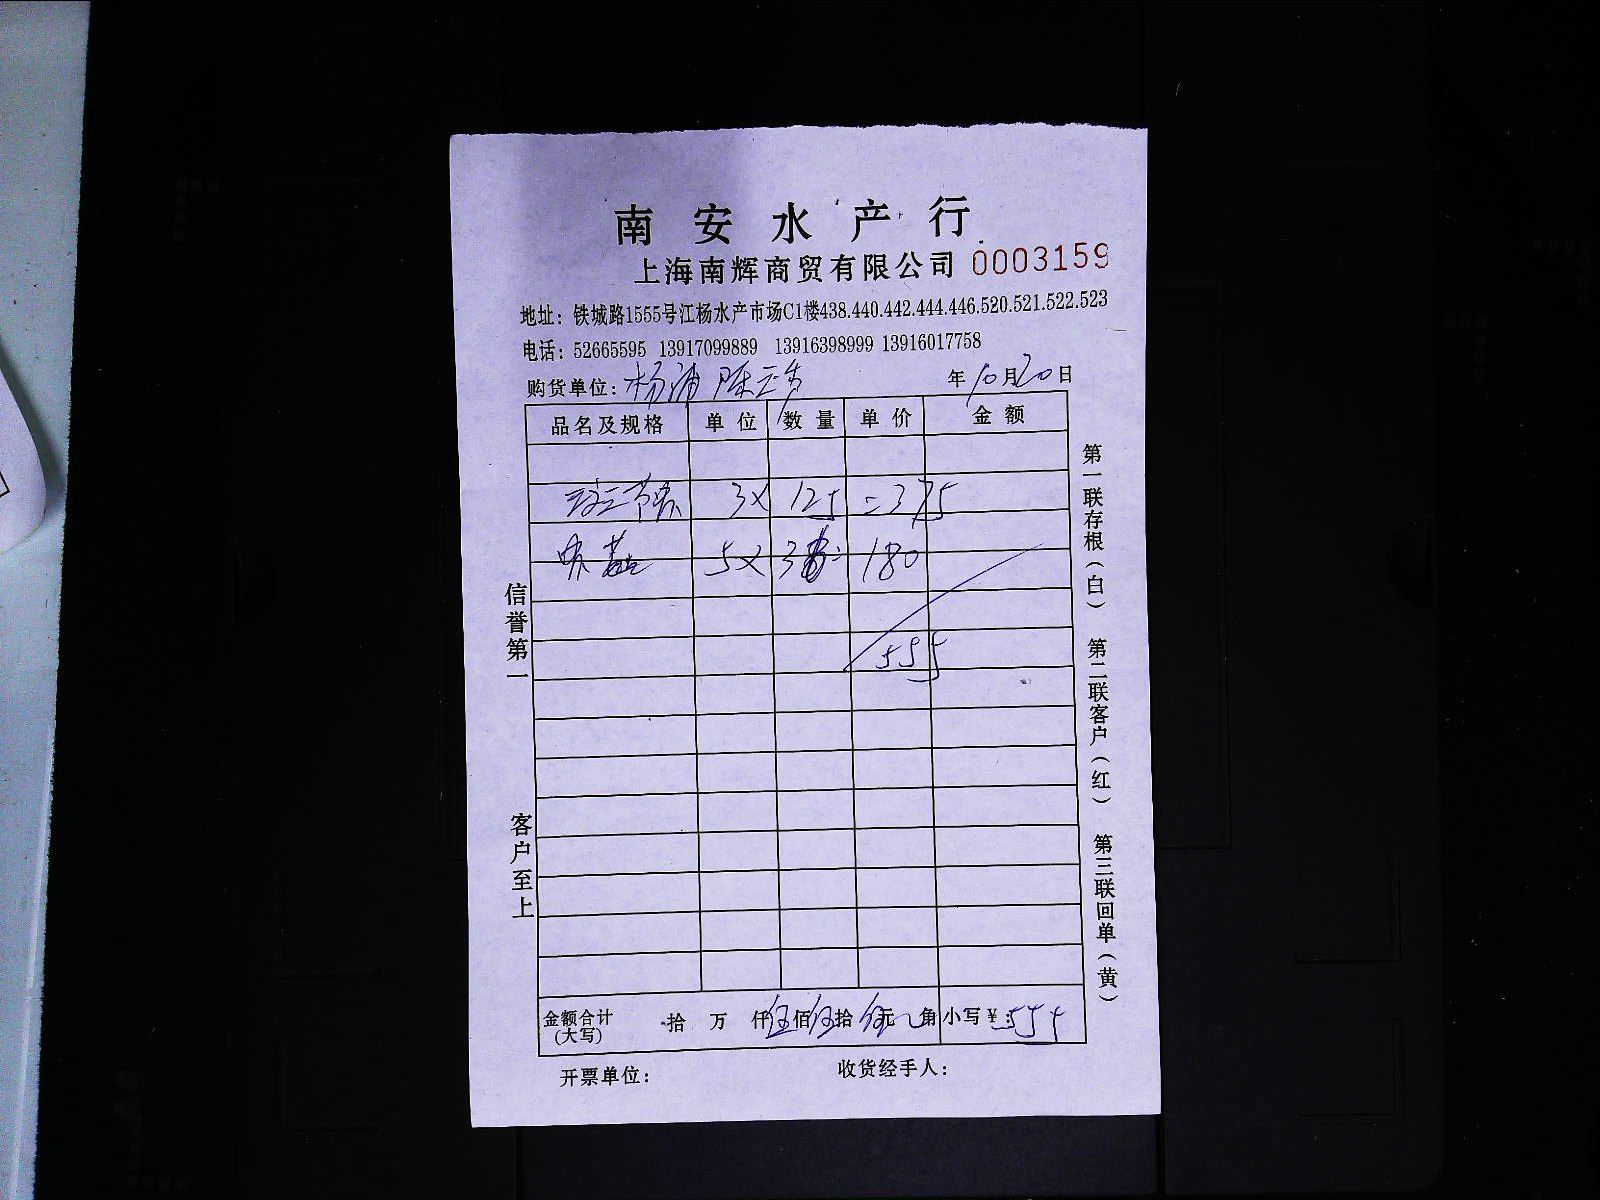 南安水产行
上海南辉商贸有限公司 0003159
地址：铁城路1555号江杨水产市场C1楼438.440.442.444.446.520.521.522.523
电话：52665595 13917099889 13916398999 13916017758
购货单位：杨浦 陈 年10月20日
品名及规格 单位 数量 单价 金额
3× 125 =375
5× 180
555
金额合计(大写) 拾 万 仟伍佰伍拾伍元 角 小写¥：555
开票单位： 收货经手人：
信誉第一
客户至上
第一联存根（白） 第二联客户（红） 第三联回单（黄）